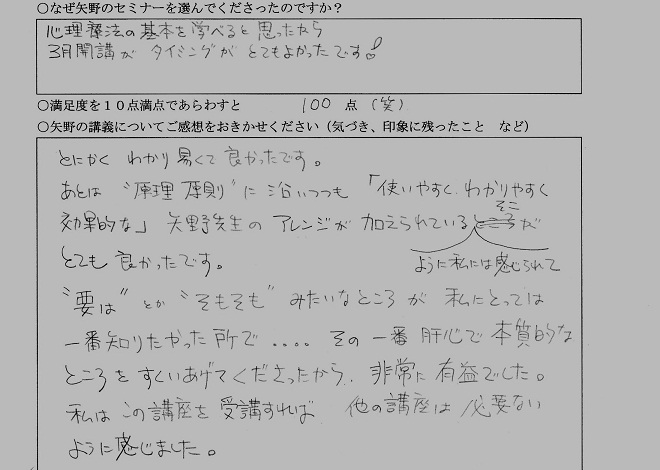 ○なぜ矢野のセミナーを選んでくださったのですか？
心理療法の基本を学べると思ったから
3月開講が タイミングが とてもよかったです！
○満足度を１０点満点であらわすと 100 点 (笑)
○矢野の講義についてご感想をおきかせください（気づき、印象に残ったこと など）
とにかく わかり易くて 良かったです。
あとは “原理 原則” に 沿いつつも 「使いやすく、わかりやすく
効果的な」 矢野先生の アレンジが 加えられている そこ が
ように私には感じられて
とても 良かったです。
“要は” とか “そもそも” みたいなところ が 私にとっては
一番知りたかった 所で .... その 一番 肝心で 本質的な
ところを すくいあげて くださったから、非常に 有益でした。
私は この講座を 受講すれば 他の講座は 必要ない
ように感じました。